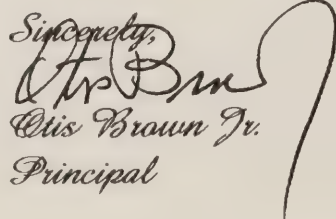 Sincerely,
Otis Brown
Otis Brown Jr.
Principal